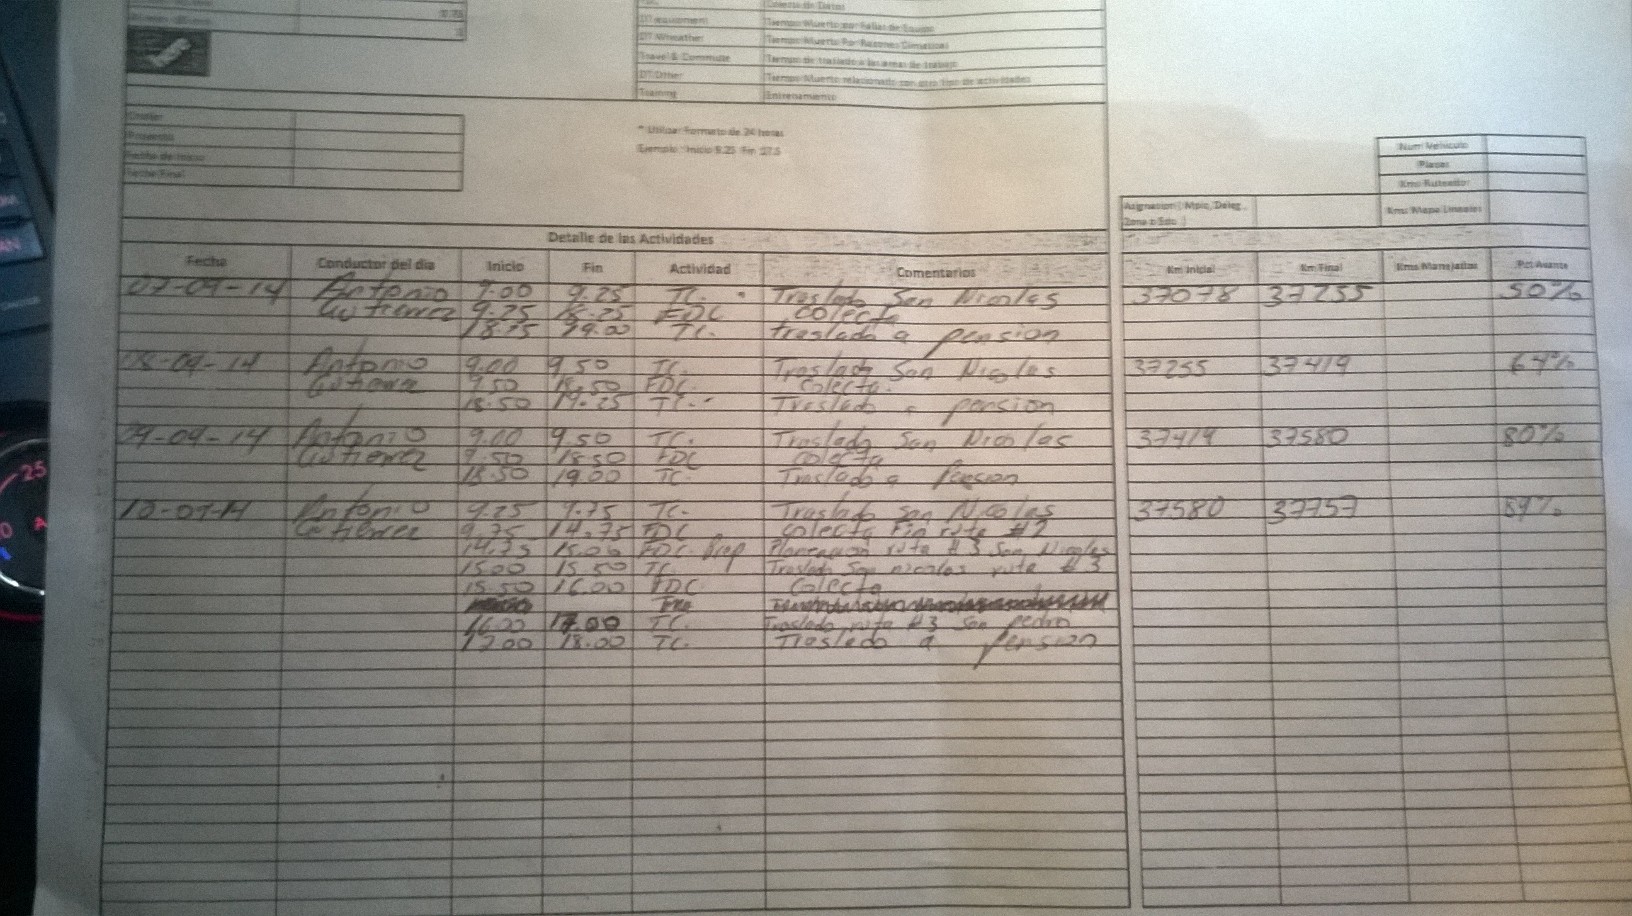 0.75
Colecta de Datos
DT equipment Tiempo Muerto por Fallas de Equipo
DT Wheather Tiempo Muerto Por Razones Climaticas
Travel & Commute Tiempo de traslado a las areas de trabajo
DT Other Tiempo Muerto relacionado con otro tipo de actividades
Training Entrenamiento
Cluster
Proyecto
Fecha de Inicio
Fecha Final
* Utilizar Formato de 24 horas
Ejemplo : Inicio 9.25 Fin 17.5
Num Vehiculo
Placas
Kms Ruteador
Kms Mapa Lineales
Asignacion ( Mpio, Deleg,
Zona o Edo )
Detalle de las Actividades
Fecha Conductor del dia Inicio Fin Actividad Comentarios Km Inicial Km Final Kms Manejados Pct Avance
07-09-14 Antonio 9.00 9.25 TC. Traslado San Nicolas 37078 37255 50%
Gutierrez 9.25 18.25 FDC colecta
18.75 19.00 TC. traslado a pension
08-09-14 Antonio 9.00 9.50 TC. Traslado San Nicolas 37255 37419 64%
Gutierrez 9.50 18.50 FDC. Colecta.
18.50 19.25 TC. Traslado a pension
09-09-14 Antonio 9.00 9.50 TC. Traslado San Nicolas 37419 37580 80%
Gutierrez 9.50 18.50 FDC colecta
18.50 19.00 TC. Traslado a Pension
10-09-14 Antonio 9.25 9.75 TC. Traslado San Nicolas 37580 37757 89%
Gutierrez 9.75 14.75 FDC colecta Fin ruta #2
14.75 15.00 FDC Prep Planeacion ruta #3 San Nicolas
15.00 15.50 TC Traslado San nicolas ruta #3
15.50 16.00 FDC Colecta
16.00 17.00 TC. Traslado ruta #3 San pedro
17.00 18.00 TC. Traslado a pension
25